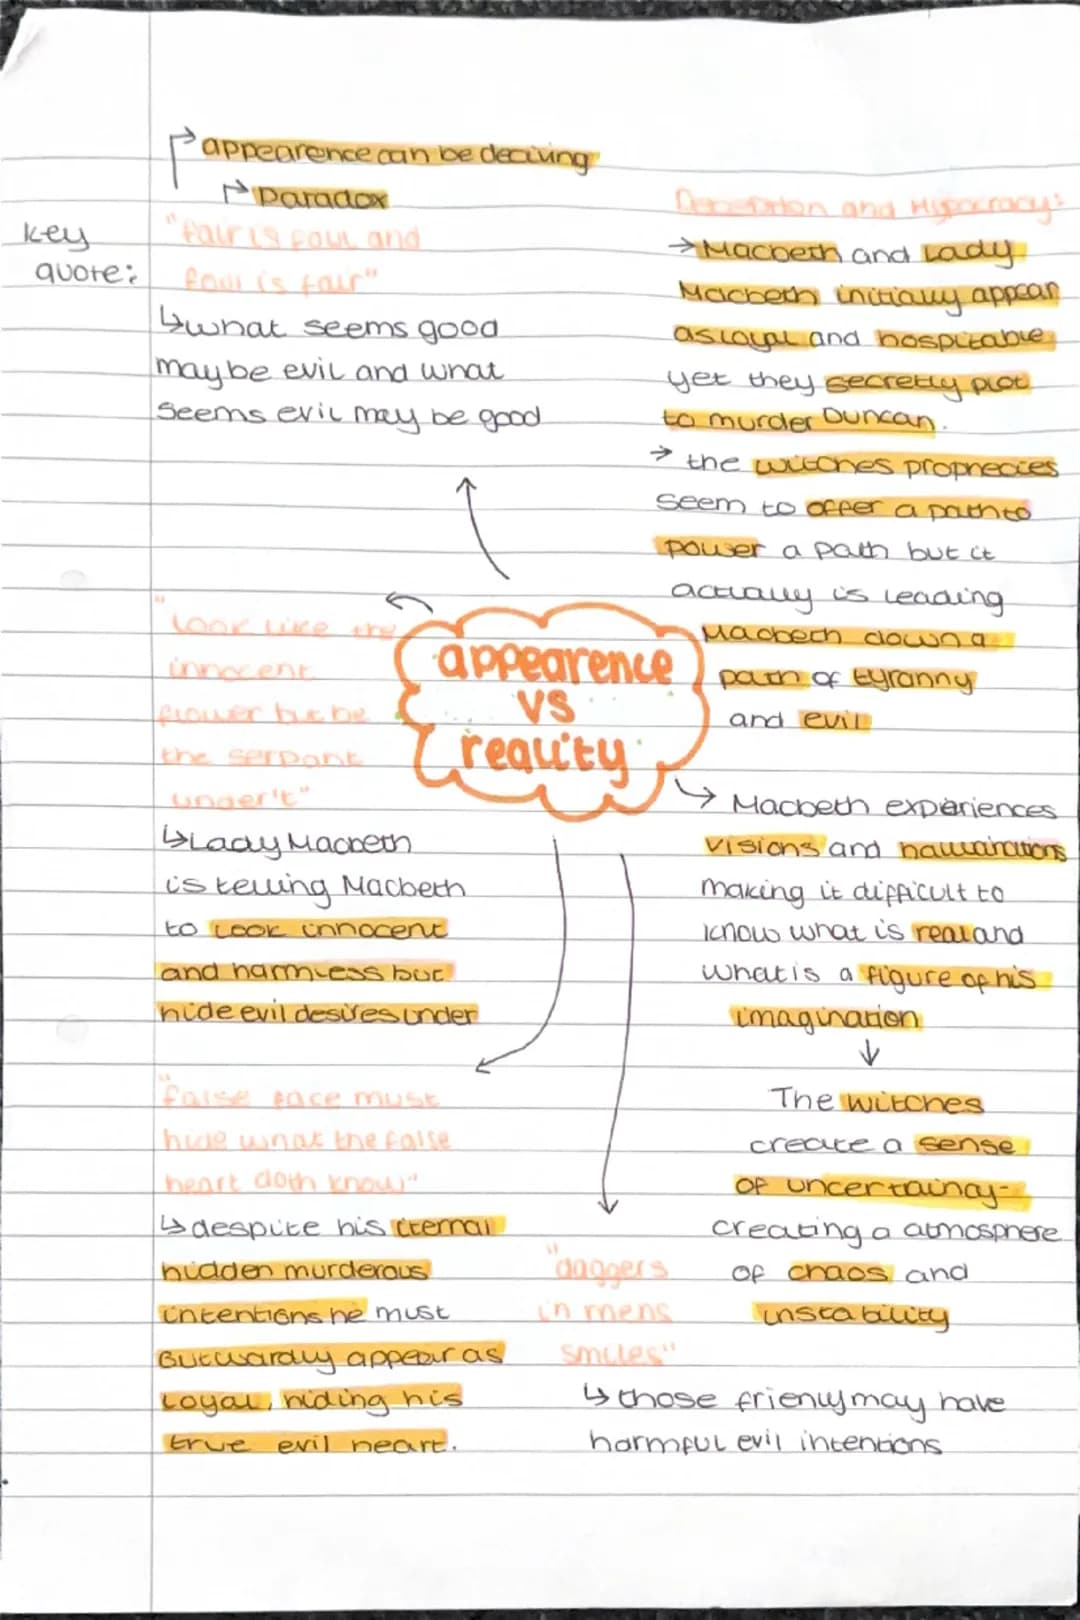 appearence can be deciving
Paradox
key
quote:
"fair is foul and
foul is fair"
↳what seems good
may be evil and what
seems evil may be good
Deception and Hypocracy:
→Macbeth and Lady
Macbeth initially appear
as loyal and hospitable
yet they secretly plot
to murder Duncan.
→ the witches prophecies
seem to offer a path to
power a path but it
actually is leading
Macbeth down a
path of tyranny
and evil
appearence
vs
reality
"look like the
innocent
flower but be
the serpant
under't"
↳Lady Macbeth
is telling Macbeth
to look innocent
and harmless but
hide evil desires under
→ Macbeth experiences
visions and
making it difficult to
know what is real and
what is a figure of his
imagination
↓
The witches
create a sense
of uncertainay-
creating a atmosphere
of chaos and
instability
"false face must
hide what the false
heart doth know"
↳despite his iternal
hidden murderous
intentions he must
outwardly appear as
loyal, hiding his
true evil heart.
"daggers
in mens
smiles"
↳those frienly may have
harmful evil intentions